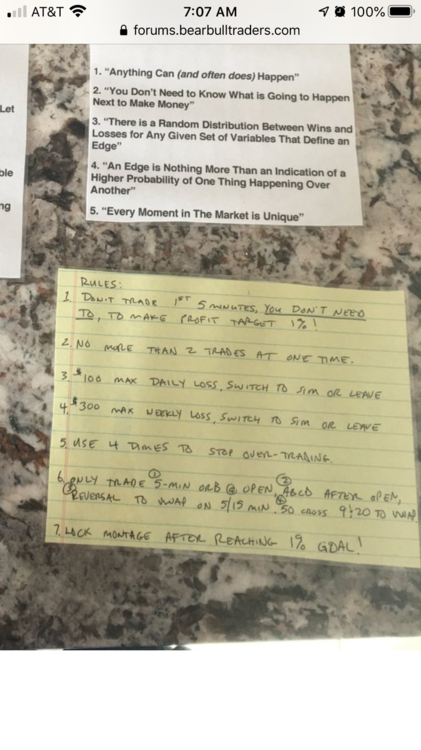 AT&T 7:07 AM 100%
forums.bearbulltraders.com
Let
ble
ng
1. “Anything Can (and often does) Happen”
2. “You Don’t Need to Know What is Going to Happen
Next to Make Money”
3. “There is a Random Distribution Between Wins and
Losses for Any Given Set of Variables That Define an
Edge”
4. “An Edge is Nothing More Than an Indication of a
Higher Probability of One Thing Happening Over
Another”
5. “Every Moment in The Market is Unique”
RULES:
1. DON'T TRADE 1ST 5 MINUTES, YOU DON'T NEED
TO, TO MAKE PROFIT TARGET 1%!
2. NO MORE THAN 2 TRADES AT ONE TIME.
3. $100 MAX DAILY LOSS, SWITCH TO SIM OR LEAVE
4. $300 MAX WEEKLY LOSS, SWITCH TO SIM OR LEAVE
5. USE 4 DIMES TO STOP OVER-TRADING.
6. ONLY TRADE ① 5-MIN ORB @ OPEN, ② ABCD AFTER OPEN,
③ REVERSAL TO VWAP ON 5/15 MIN. ④ 50 CROSS 9/20 TO VWAP
7. LOCK MONTAGE AFTER REACHING 1% GOAL!